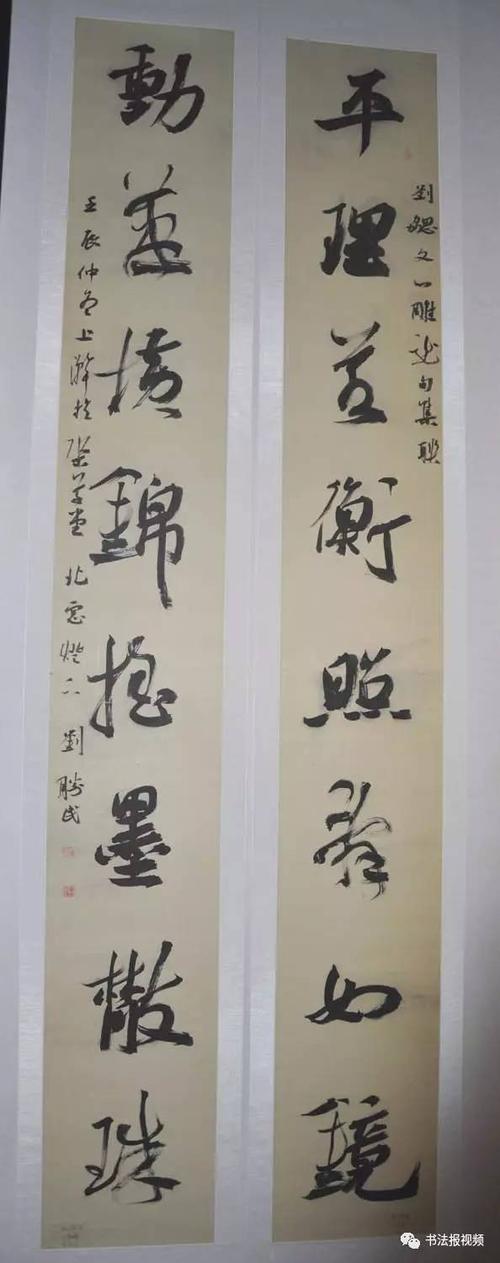 劉勰文心雕龍句集聯
平理若衡照辭如鏡
動筆橫錦搖墨散珠
壬辰仲冬上澣於堂北窗燈下劉勝民
书法报视频